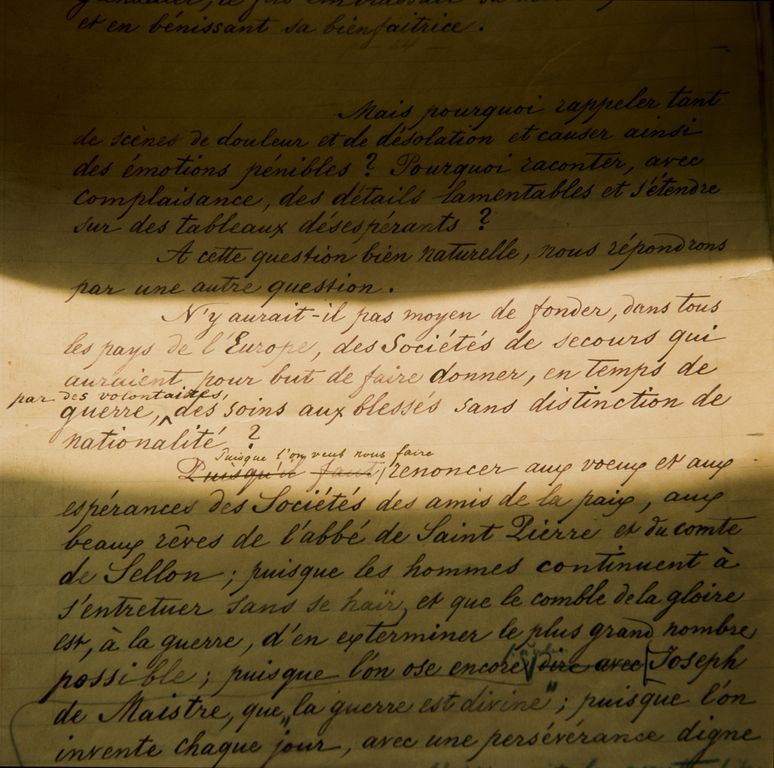 et en bénissant sa bienfaitrice.
Mais pourquoi rappeler tant
de scènes de douleur et de désolation et causer ainsi
des émotions pénibles ? Pourquoi raconter, avec
complaisance, des détails lamentables et s'étendre
sur des tableaux désespérants ?
A cette question bien naturelle, nous répondrons
par une autre question.
N'y aurait-il pas moyen de fonder, dans tous
les pays de l'Europe, des Sociétés de secours qui
auraient pour but de faire donner, en temps de
par des volontaires,
guerre, des soins aux blessés sans distinction de
nationalité ?
Puisque l'on veut nous faire
Puisqu'il faut renoncer aux voeux et aux
espérances des Sociétés des amis de la paix, aux
beaux rêves de l'abbé de Saint Pierre et du comte
de Sellon ; puisque les hommes continuent à
s'entretuer sans se haïr, et que le comble de la gloire
est, à la guerre, d'en exterminer le plus grand nombre
possible ; puisque l'on ose encore dire avec Joseph
de Maistre, que "la guerre est divine" ; puisque l'on
invente chaque jour, avec une persévérance digne